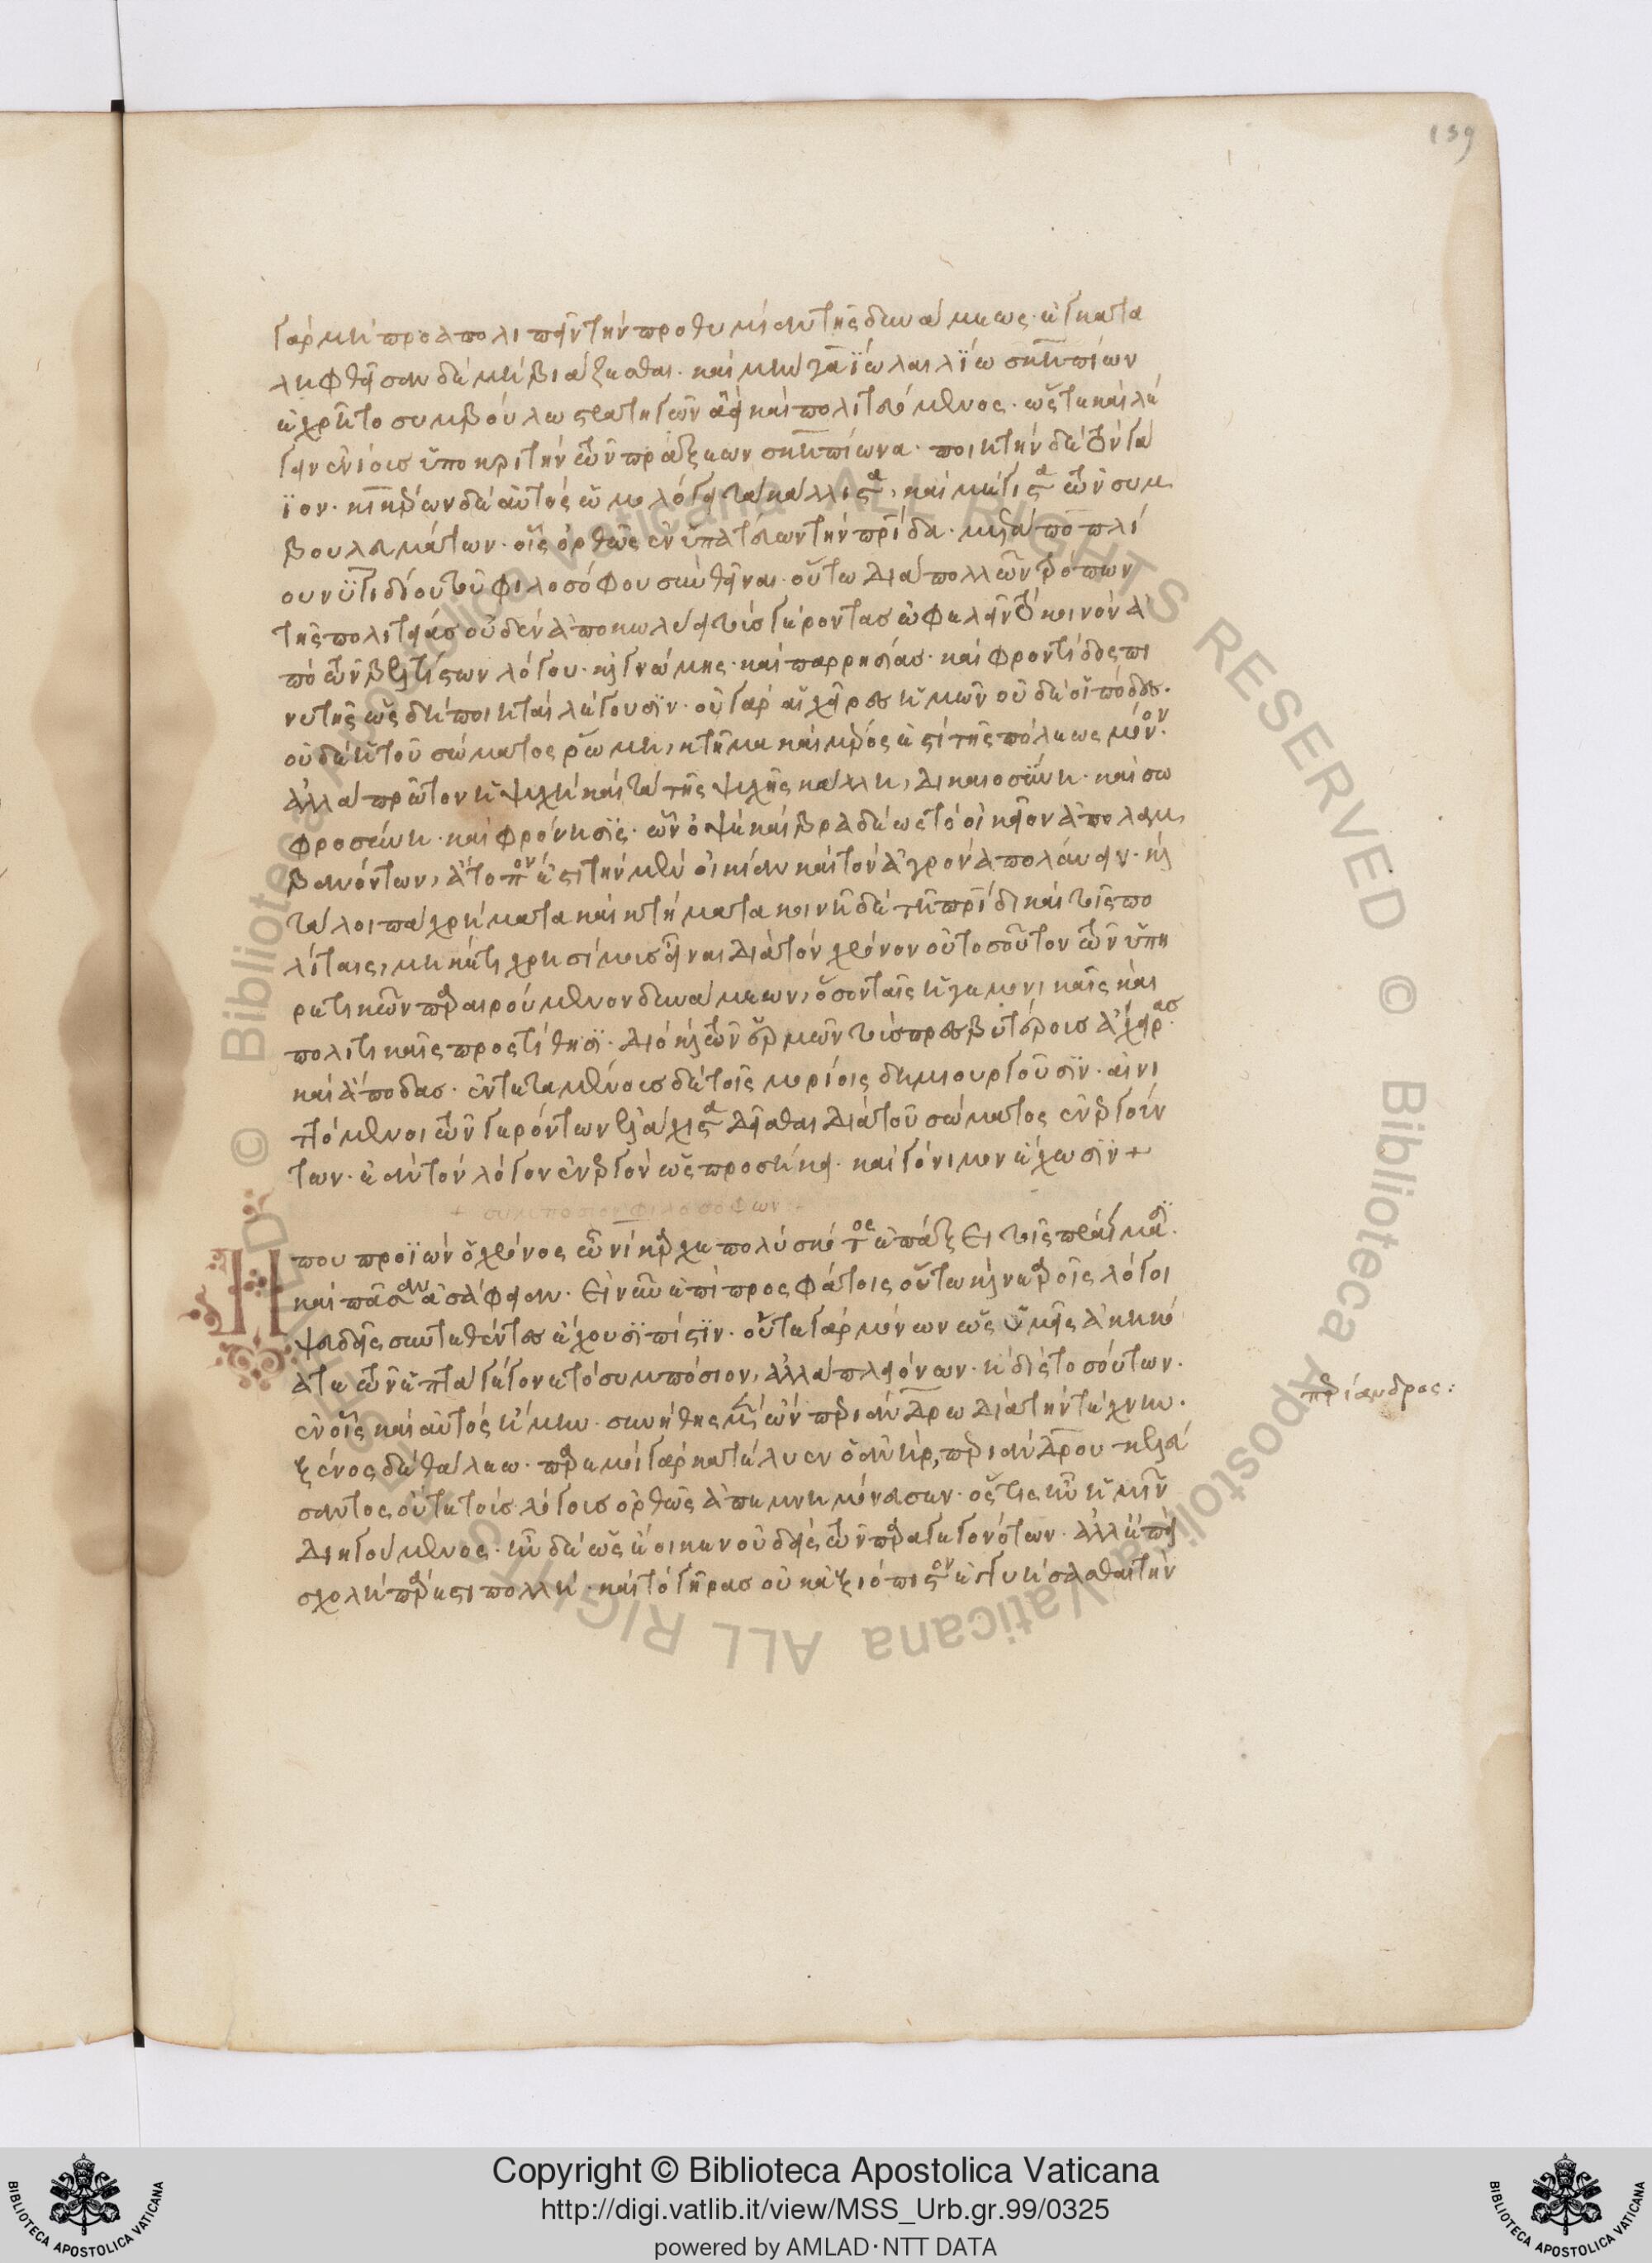 139
γὰρ μὴ προαπολιπεῖν τὴν προθυμίαν τῆς δυνάμεως· ἐγκατα
ληφθεῖσαν δὲ μὴ βιάζεσθαι. καὶ μὴν γαΐω λαιλίω σκηπίων
ἐχρῆτο συμβούλω στρατηγῶν ἀεὶ καὶ πολιτευόμενος. ὥστε καὶ λέ
γειν ἐνίους ὑποκριτὴν τῶν πράξεων σκηπίωνα. ποιητὴν δὲ τὸν γά
ϊον. κικέρων δὲ αὐτὸς ὁμολογεῖ τὰ κάλλιστα, καὶ μέγιστα τῶν συμ
βουλευμάτων. οἷς ὀρθῶς ἐν ὑπατεύων τὴν πρίδα. μετὰ ποπλί
ου νϊγιδίου τοῦ φιλοσόφου συνθεῖναι. οὕτω διὰ πολλῶν τρόπων
τῆς πολιτείας οὐδὲν ἀποκωλύει τοὺς γέροντας ὠφελεῖν τὸ κοινὸν ἀ
πὸ τῶν βελτίστων λόγου. καὶ γνώμης. καὶ παρρησίας. καὶ φροντίδος πι
νυτῆς ὡς δὴ ποιηταὶ λέγουσϊν. οὐ γὰρ αἱ χεῖρες ἡμῶν οὐδὲ οἱ πόδες.
οὐδὲ ἡ τοῦ σώματος ῥώμη, κτῆμα καὶ μέρος ἐστὶ τῆς πόλεως μόνον.
ἀλλὰ πρῶτον ἡ ψυχὴ καὶ τὰ τῆς ψυχῆς κάλλη, δικαιοσύνη. καὶ σω
φροσύνη. καὶ φρόνησϊς. ὧν ὀψὲ καὶ βραδέως τὸ οἰκεῖον ἀπολαμ
βανόντων, ἄτοπόν ἐστι τὴν μὲν οἰκίαν καὶ τὸν ἀγρὸν ἀπολάυειν. καὶ
τὰ λοιπὰ χρήματα καὶ κτήματα κοινῆ δὲ τῆ πρίδι καὶ τοῖς πο
λίταις, μηκέτι χρησίμους εἶναι διὰ τὸν χρόνον οὐ τοσοῦτον τῶν ὑπη
ρετικῶν παραιρούμενον δυνάμεων, ὅσον ταῖς ἡγεμονικαῖς καὶ
πολιτικαῖς προστίθησϊ. διὸ καὶ τῶν ἑρμῶν τοὺς πρεσβυτέρους ἄχειρας
καὶ ἄποδας. ἐντεταμένους δὲ τοῖς μορίοις δημιουργοῦσϊν. αἰνι
τόμενοι τῶν γερόντων ἐλάχιστα δεῖσθαι διὰ τοῦ σώματος ἐνεργούν
των. ἐὰν τὸν λόγον ἐνεργὸν ὡς προσήκει. καὶ γόνιμον ἔχωσϊν +
+ συμποσϊον φιλοσοφων +
Ἦ που προϊὼν ὁ χρόνος ὦ νίκαρχε πολὺ σκότος ἐπάξει τοῖς πράγμασϊ.
καὶ πᾶσαν ἀσάφειαν. εἰ νῦν ἐπὶ προσφάτοις οὕτω καὶ νεαροῖς λόγοι
ψευδεῖς συντεθέντες ἔχουσϊ πίστϊν. οὔτε γὰρ μόνων ὡς ὑμεῖς ἀκηκό
ατε τῶν ἑπτὰ γέγονε τὸ συμπόσιον, ἀλλὰ πλειόνων. ἢ δὶς τοσούτων.
ἐν οἷς καὶ αὐτὸς ἤμην. συνήθης μὲν ὢν περιάνδρω διὰ τὴν τέχνην.
ξένος δὲ θάλεω. παρ ἐμοὶ γὰρ κατέλυεν ὁ ἀνὴρ, περιάνδρου κελεύ
σαντος οὔτε τοὺς λόγους ὀρθῶς ἀπεμνημόνευσεν. ὅστις ἦν ἡμῖν
διηγούμενος. ἦν δὲ ὡς ἔοικεν οὐδεὶς τῶν παραγεγονότων. ἀλλ ἐπεὶ
σχολὴ πάρεστι πολλὴ. καὶ τὸ γῆρας οὐκ ἀξιόπιστον ἐγγυήσασθαι τὴν
περίανδρος:
Copyright © Biblioteca Apostolica Vaticana
http://digi.vatlib.it/view/MSS_Urb.gr.99/0325
powered by AMLAD·NTT DATA
BIBLIOTECA APOSTOLICA VATICANA
BIBLIOTECA APOSTOLICA VATICANA
© Biblioteca Apostolica Vaticana ALL RIGHTS RESERVED © Biblioteca Apostolica Vaticana ALL RIGHTS RESERVED